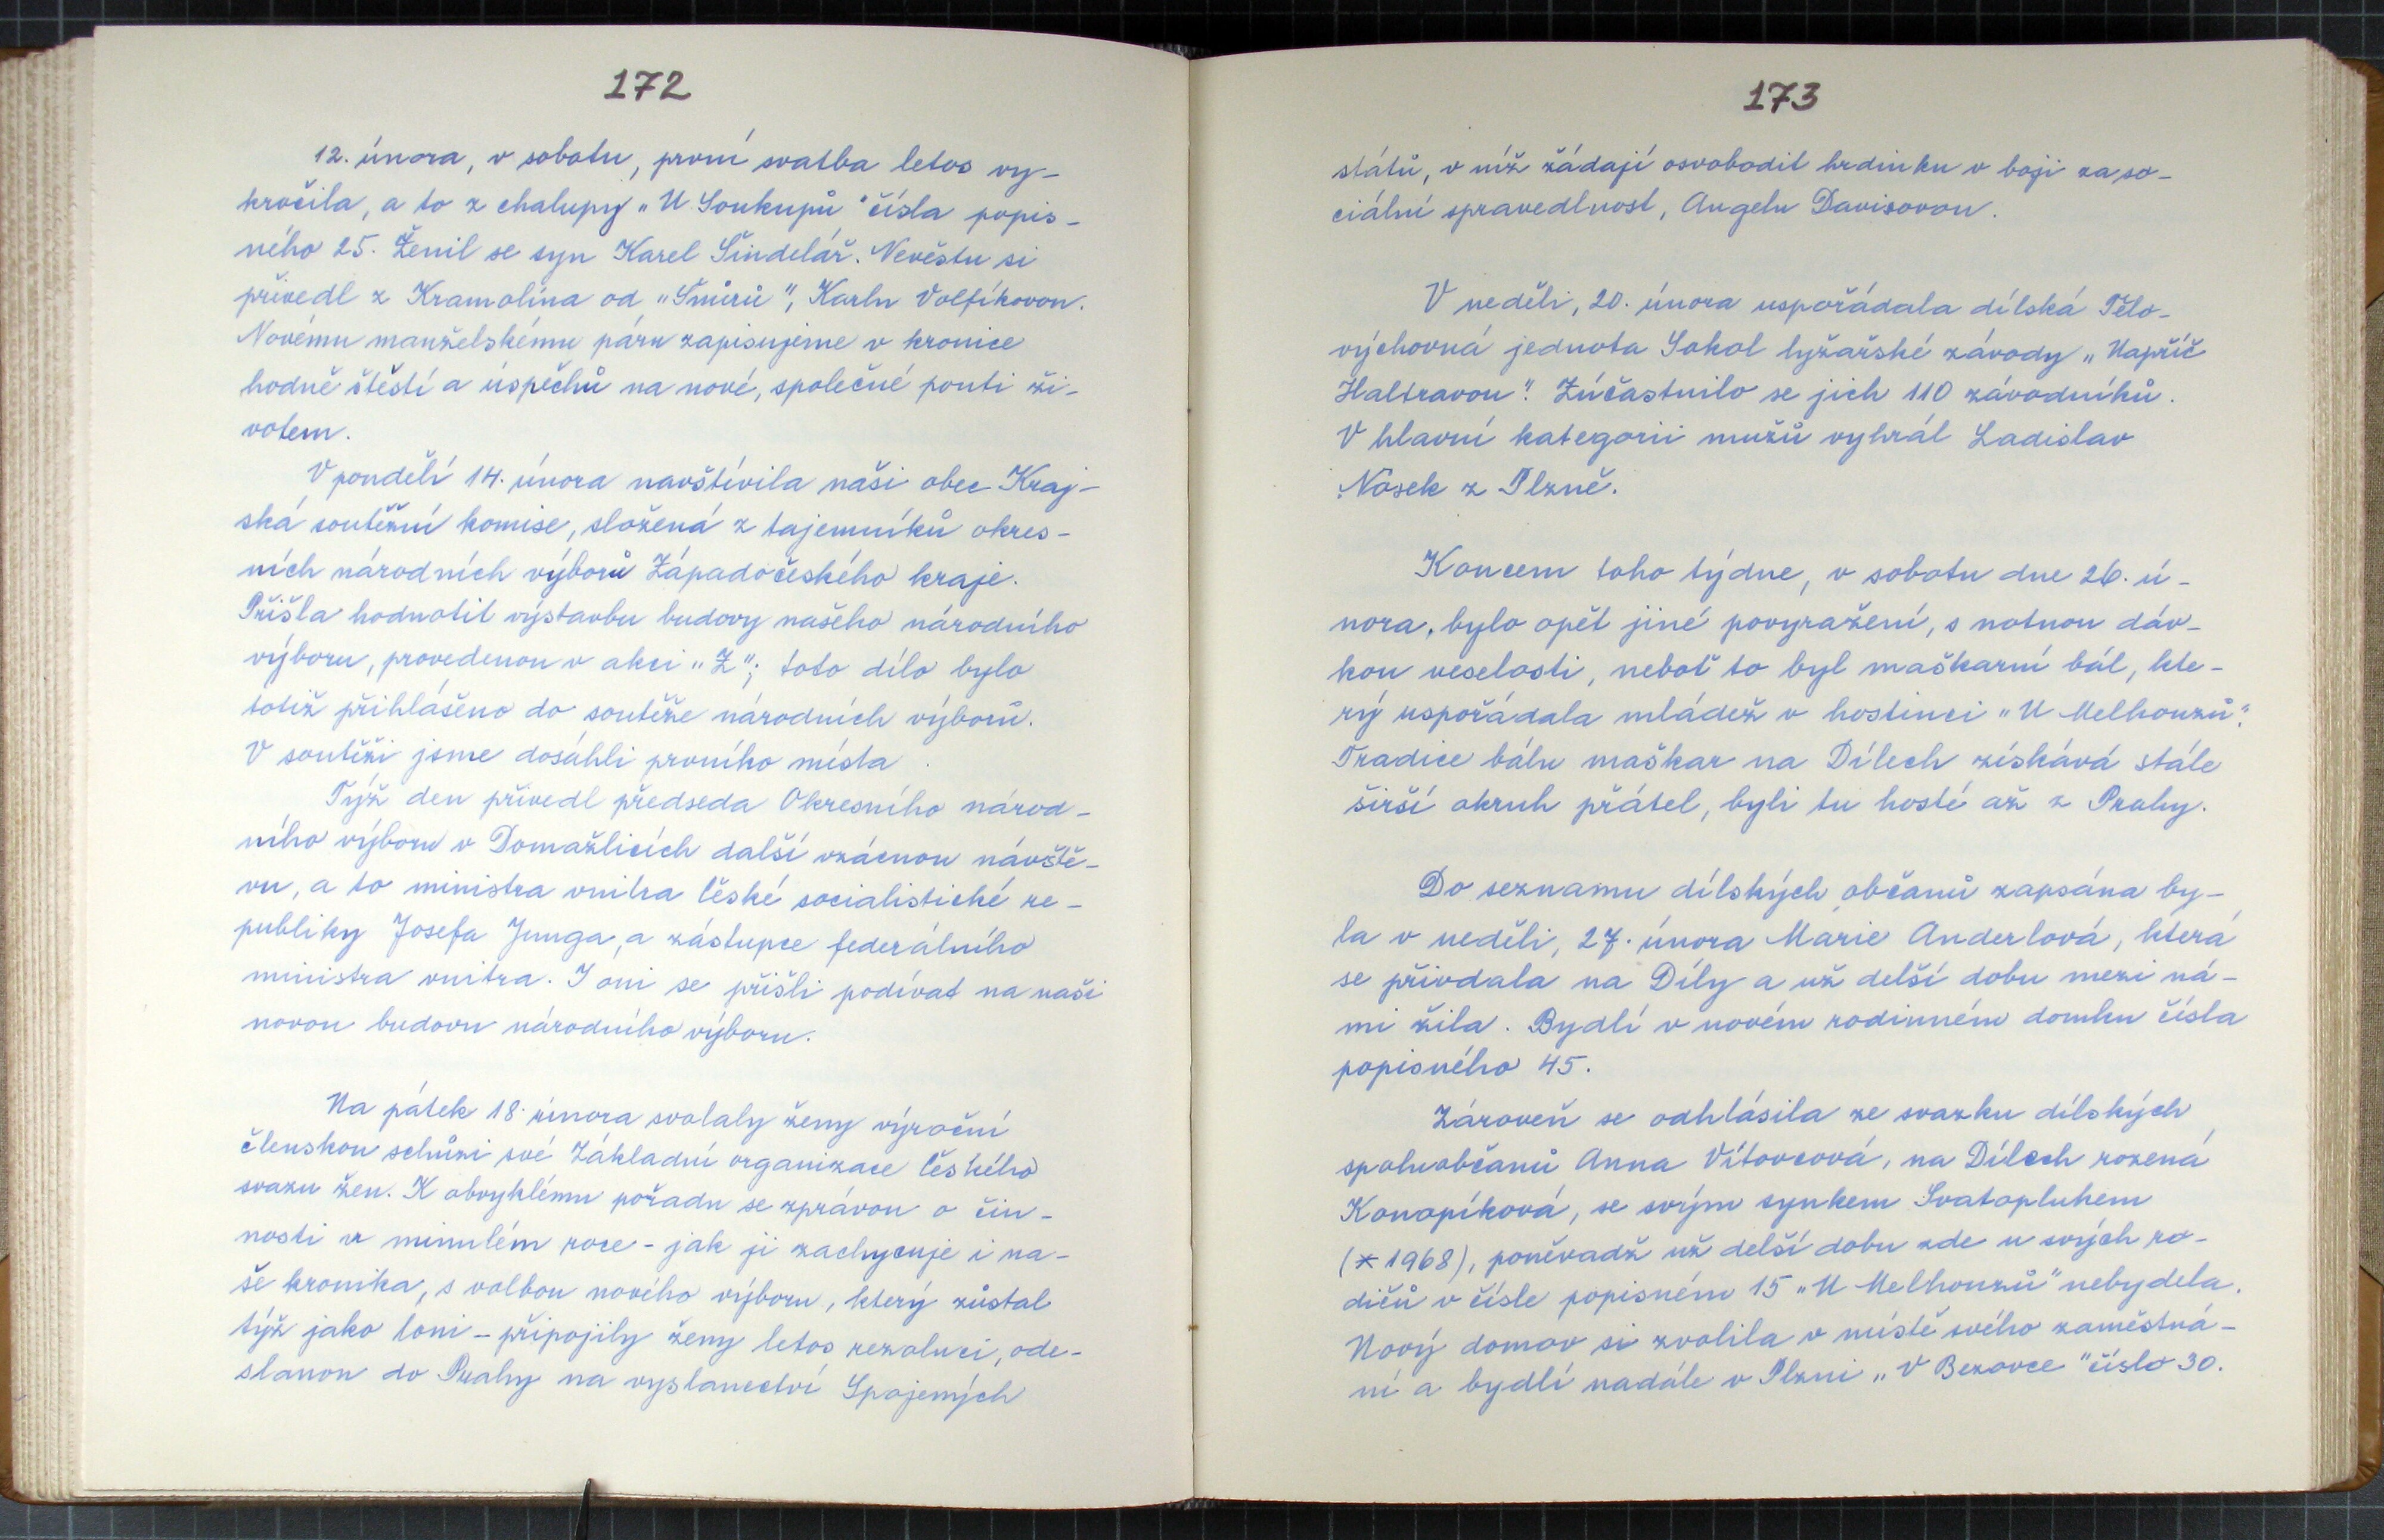 172
12. února, v sobotu, první svatba letos vy-
kročila, a to z chalupy „U Soukupů" čísla popis-
ného 25. Ženil se syn Karel Šindelář. Nevěstu si
přivedl z Kramolína od „Šmůrů", Karlu Volfíkovou.
Novému manželskému páru zapisujeme v kronice
hodně štěstí a úspěchů na nové, společné pouti ži-
votem.
V pondělí 14. února navštívila naši obec Kraj-
ská soutěžní komise, složená z tajemníků okres-
ních národních výborů Západočeského kraje.
Přišla hodnotit výstavbu budovy našeho národního
výboru, provedenou v akci „Z"; toto dílo bylo
totiž přihlášeno do soutěže národních výborů.
V soutěži jsme dosáhli prvního místa.
Týž den přivedl předseda Okresního národ-
ního výboru v Domažlicích další vzácnou návště-
vu, a to ministra vnitra České socialistické re-
publiky Josefa Junga, a zástupce federálního
ministra vnitra. I oni se přišli podívat na naši
novou budovu národního výboru.
Na pátek 18. února svolaly ženy výroční
členskou schůzi své Základní organizace Českého
svazu žen. K obvyklému pořadu se zprávou o čin-
nosti v minulém roce - jak ji zachycuje i na-
še kronika, s volbou nového výboru, který zůstal
týž jako loni - připojily ženy letos rezoluci, ode-
slanou do Prahy na vyslanectví Spojených
173
států, v níž žádají osvobodit hrdinku v boji za so-
ciální spravedlnost, Angelu Davisovou.
V neděli, 20. února uspořádala dílská Tělo-
výchovná jednota Sokol lyžařské závody „Napříč
Haltravou". Zúčastnilo se jich 110 závodníků.
V hlavní kategorii mužů vyhrál Ladislav
Nosek z Plzně.
Koncem toho týdne, v sobotu dne 26. ú-
nora, bylo opět jiné povyražení, s notnou dáv-
kou veselosti, neboť to byl maškarní bál, kte-
rý uspořádala mládež v hostinci „U Melhouzů".
Tradice bálu maškar na Dílech získává stále
širší okruh přátel, byli tu hosté až z Prahy.
Do seznamu dílských občanů zapsána by-
la v neděli, 27. února Marie Anderlová, která
se přivdala na Díly a už delší dobu mezi ná-
mi žila. Bydlí v novém rodinném domku čísla
popisného 45.
Zároveň se odhlásila ze svazku dílských
spoluobčanů Anna Vítovcová, na Dílech rozená
Konopíková, se svým synkem Svatoplukem
(* 1968), poněvadž už delší dobu zde u svých ro-
dičů v čísle popisném 15 „U Melhouzů" nebydela.
Nový domov si zvolila v místě svého zaměstná-
ní a bydlí nadále v Plzni „V Bezovce" číslo 30.